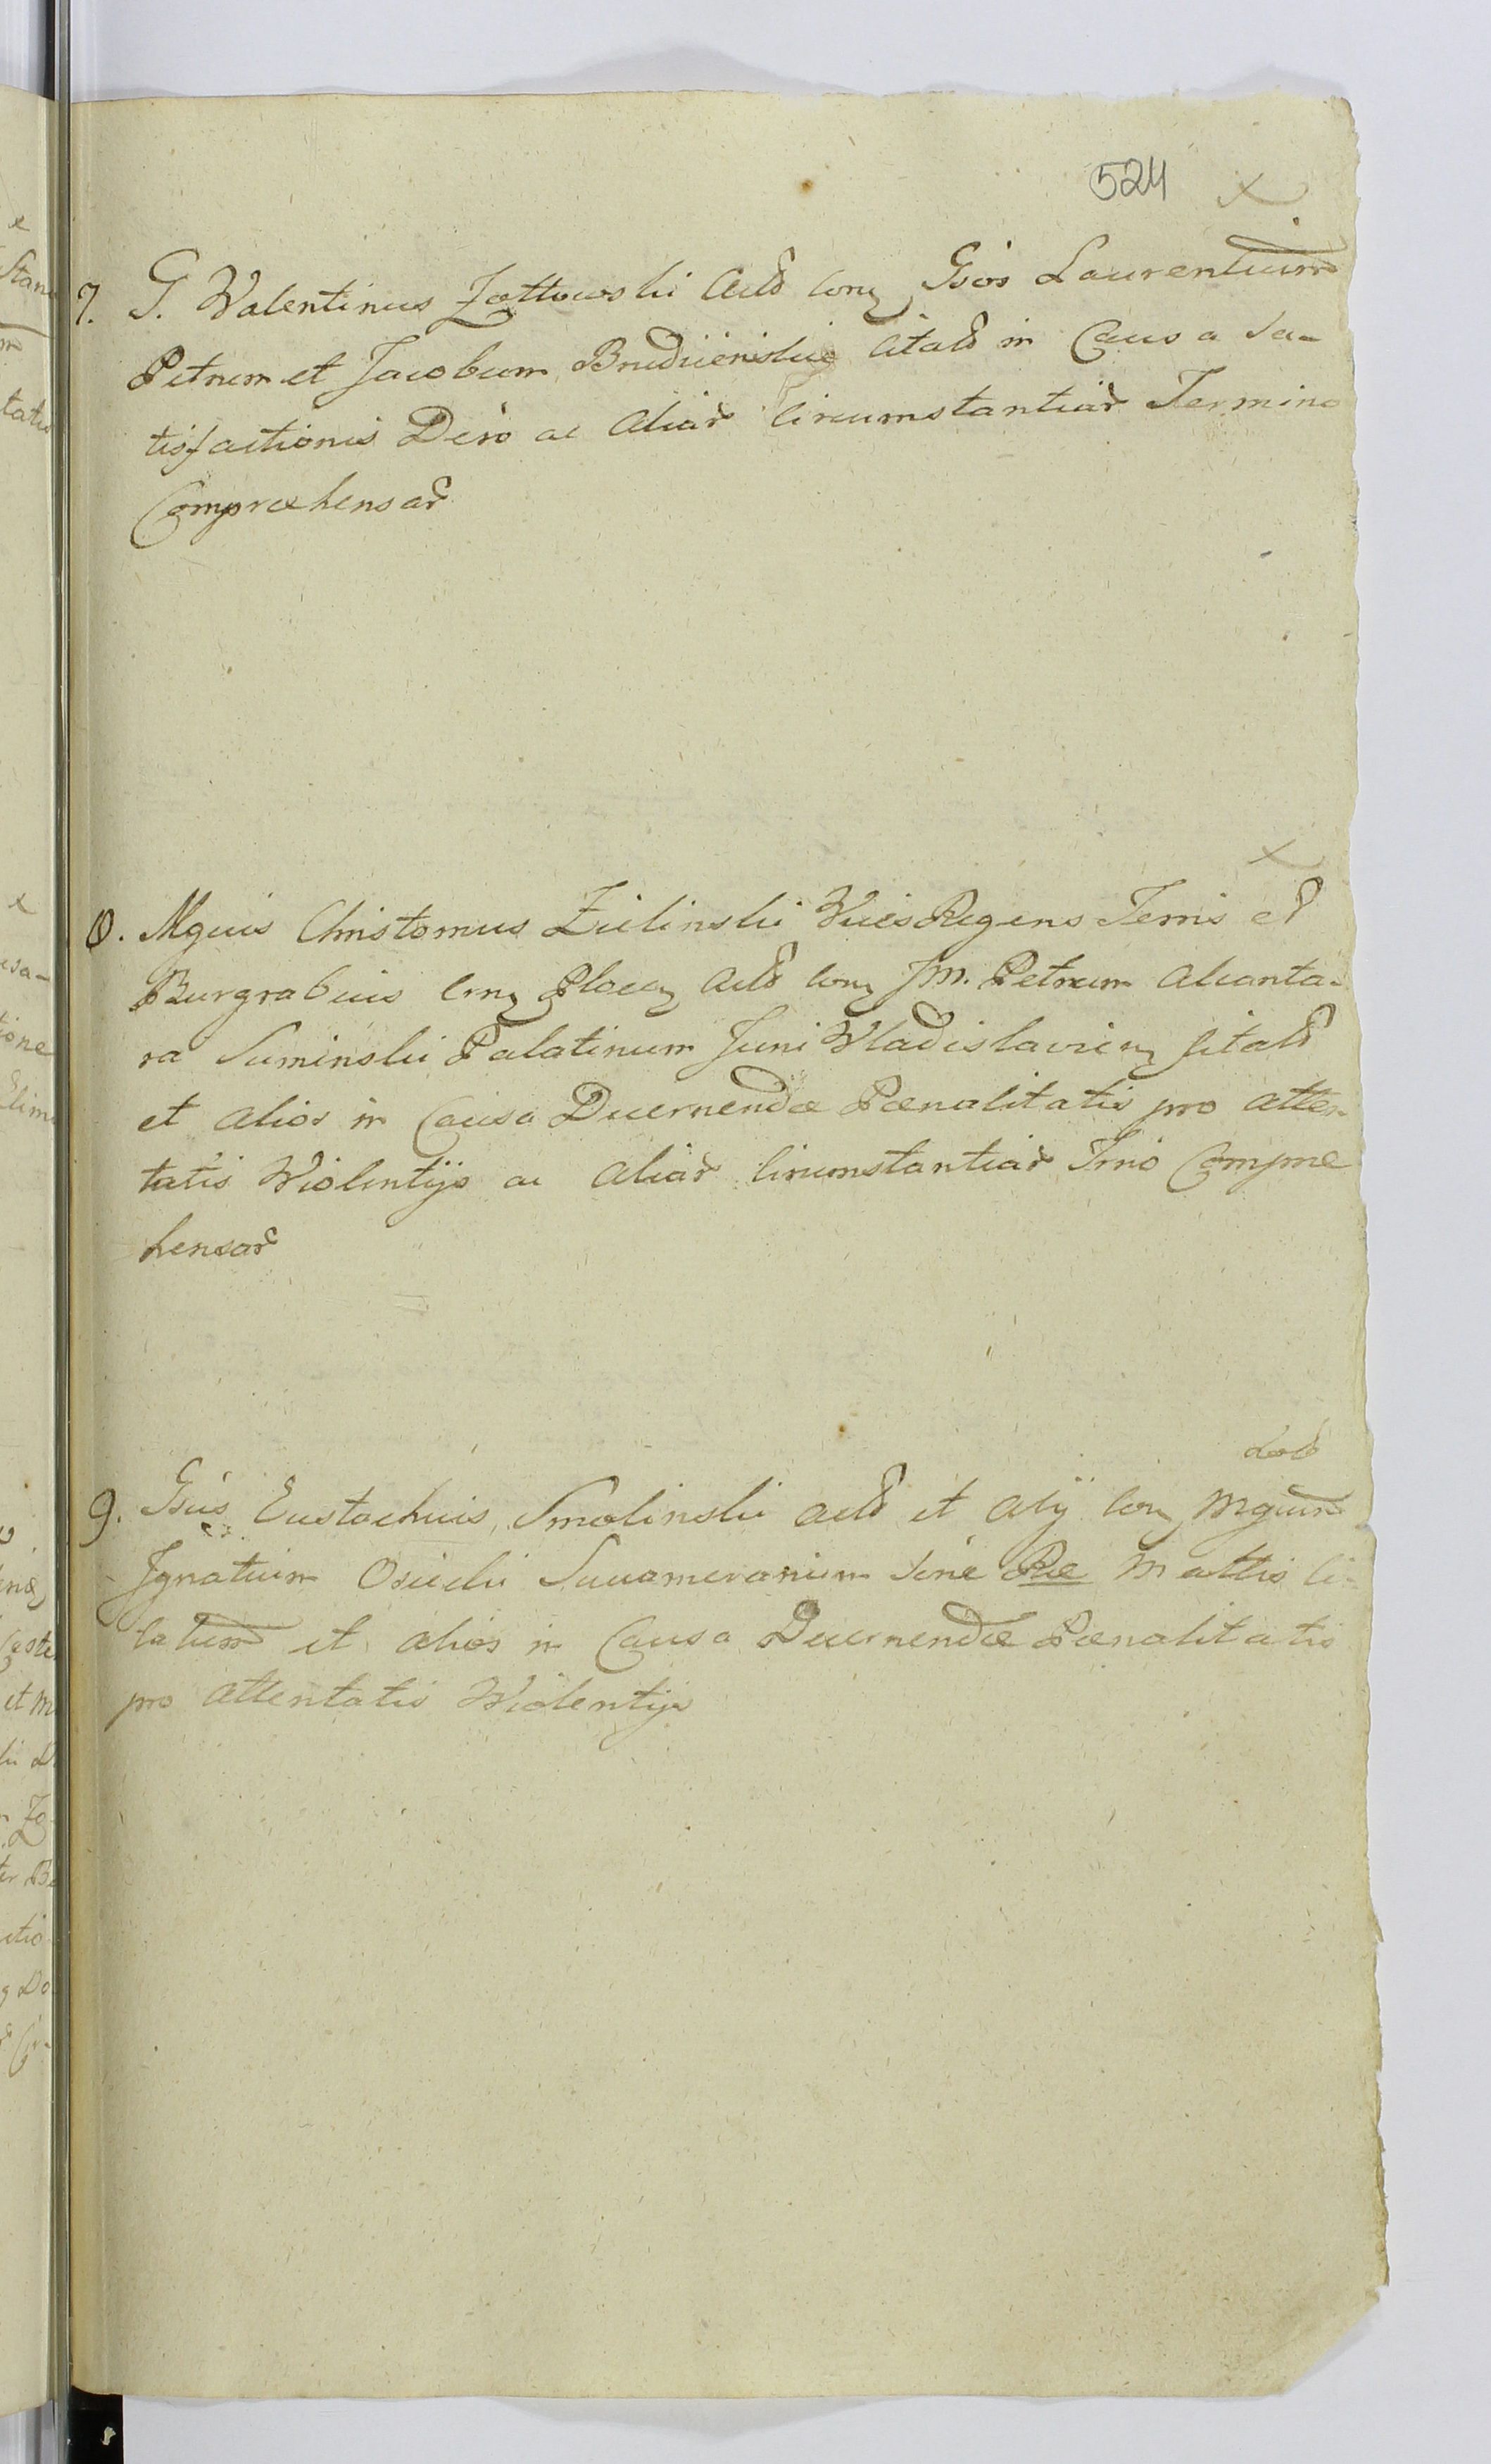 524 x
7. G. Valentinus Zółtowski Actd con Gsos Laurentium
Petrum et Jacobum citatd in Causa Sa-
tisfactionis Decro ac aliar Circumstantiar Termino
Compræhensar
x
8. Mgcus Christomus Zielinski Vices Regens Terris et
Burgrabius Crn Plocen Actd con JM. Petrum Alcanta-
ra Suminski Palatinum Juni Wladislavien citatd
et alios in Causa Decernendæ Pœnalitatis pro atten-
tatis Violentijs ac aliar Circumstantiar Trno Compræ
hensar
9. Gsus Eustachius Smolinski actd et alij con Mgcum
Ignatium Osiecki Succamerarium Sæne Ræ Mattis ci-
tatum et alios in Causa Decernendæ Pœnalitatis
pro attentatis Violentijs